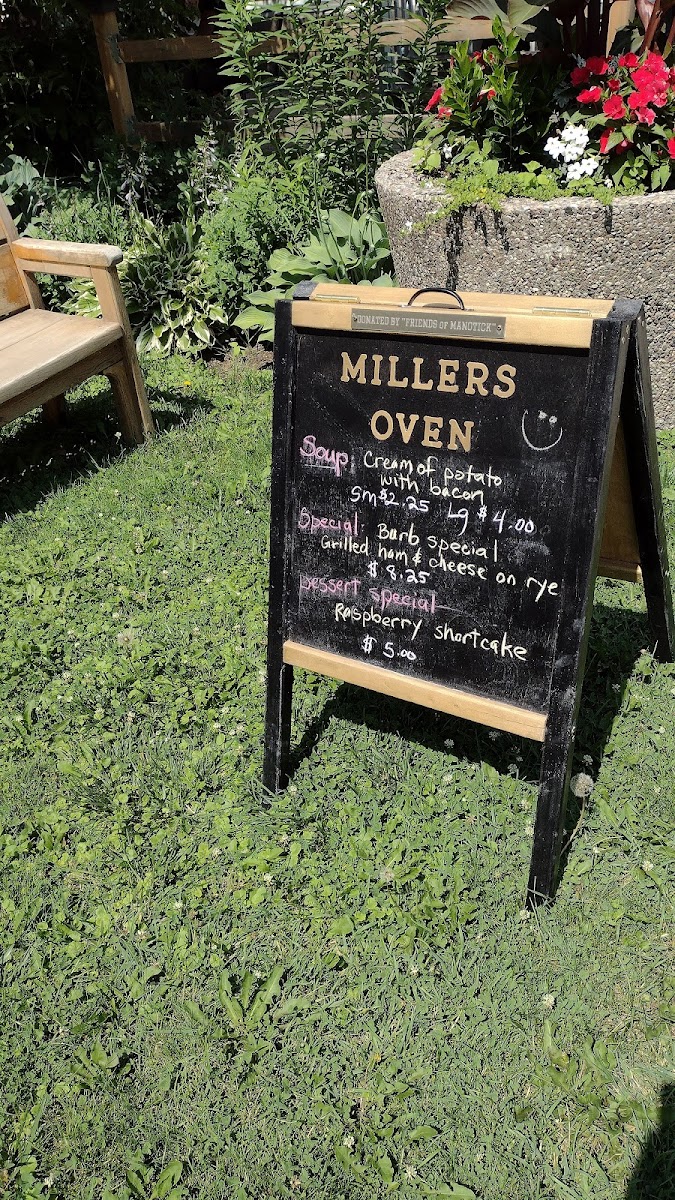 "DONATED BY "FRIENDS OF MANOTICK"
MILLERS
OVEN
Soup: Cream of potato
with bacon
Sm $2.25 Lg $4.00
Special: Barb special
Grilled ham & cheese on rye
$8.25
Dessert special
Raspberry shortcake
$5.00